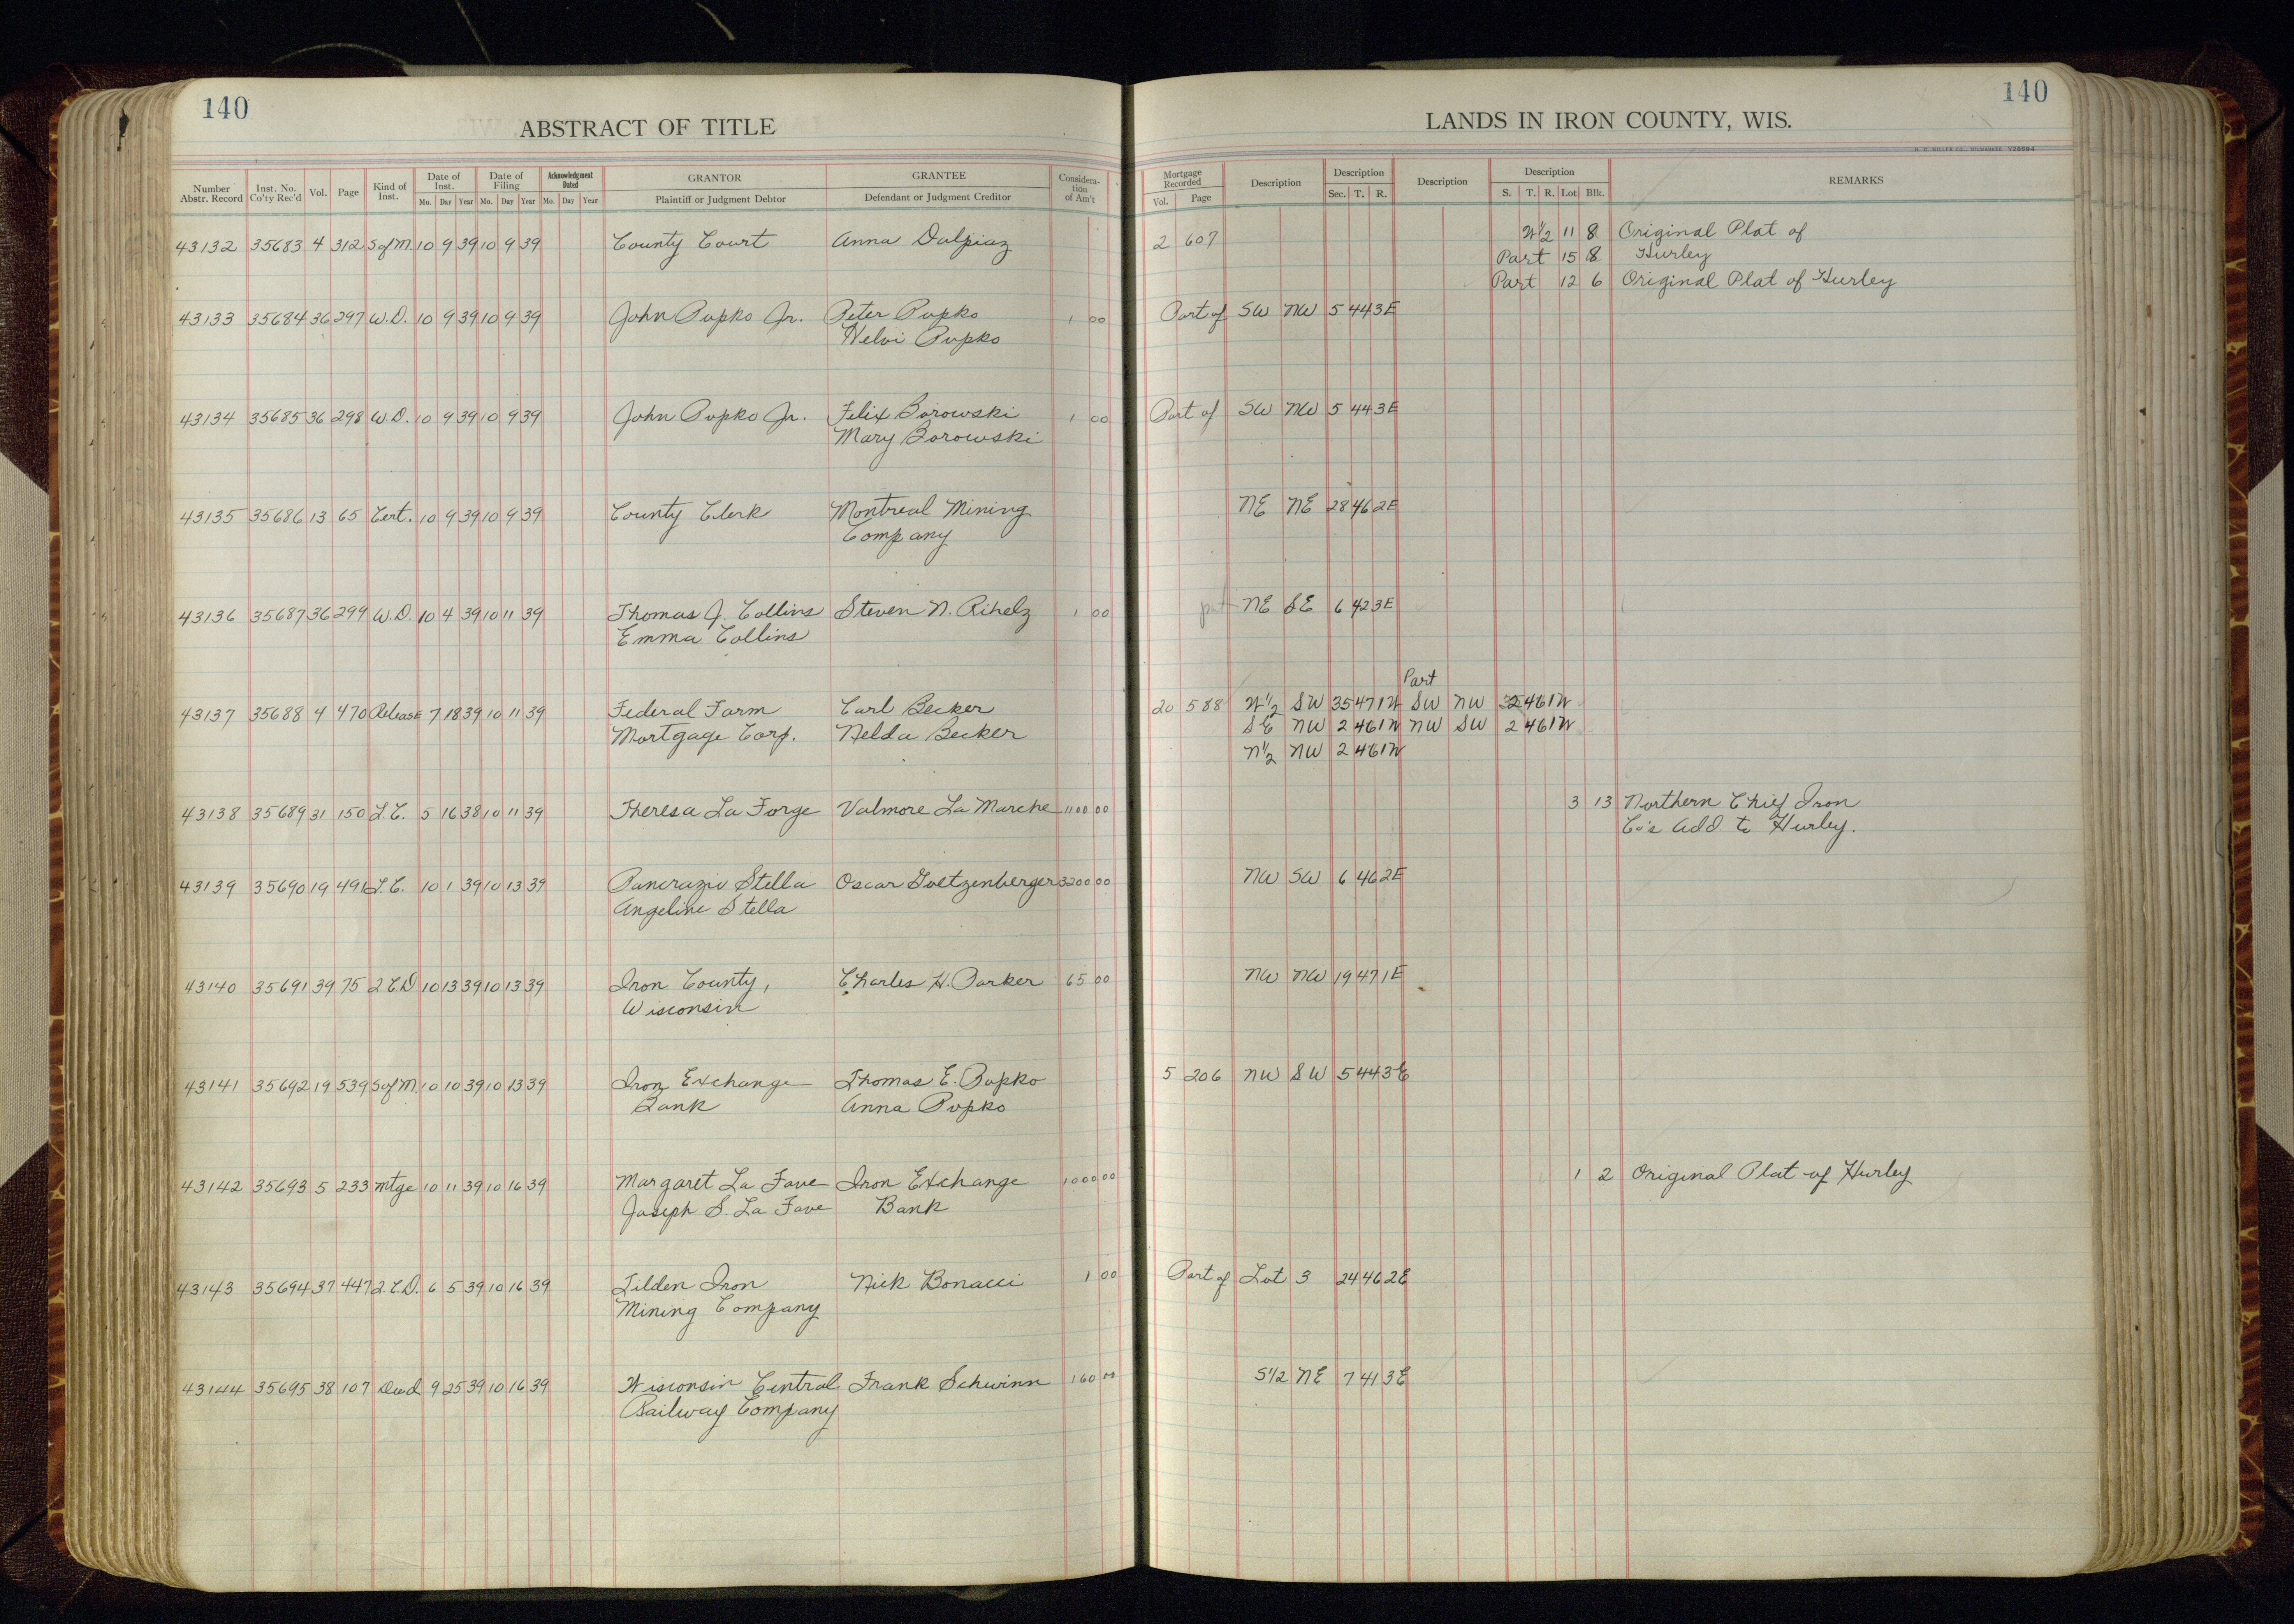 140
140
ABSTRACT OF TITLE
LANDS IN IRON COUNTY, WIS.
Number Abstr. Record Inst. No. Co'ty Rec'd Vol. Page Kind of Inst. Date of Inst. Mo. Day Year Date of Filing Mo. Day Year Acknowledgment Dated Mo. Day Year GRANTOR Plaintiff or Judgment Debtor GRANTEE Defendant or Judgment Creditor Considera-tion of Am't
Mortgage Recorded Vol. Page Description Description Sec. T. R. Description Description S. T. R. Lot Blk. REMARKS
43132 35683 4 312 S of M. 10 9 39 10 9 39 County Court Anna Dalpiaz 2 607 W½ 11 8 Original Plat of
Part 15 8 Hurley
Part 12 6 Original Plat of Hurley
43133 35684 36 297 W.D. 10 9 39 10 9 39 John Pupko Jr. Peter Pupko 1 00 Part of SW NW 5 44 3E
Helvi Pupko
43134 35685 36 298 W.D. 10 9 39 10 9 39 John Pupko Jr. Felix Borowski 1 00 Part of SW NW 5 44 3E
Mary Borowski
43135 35686 13 65 Cert. 10 9 39 10 9 39 County Clerk Montreal Mining NE NE 28 46 2E
Company
43136 35687 36 299 W.D. 10 4 39 10 11 39 Thomas J. Collins Steven N. Rihelz 1 00 part NE SE 6 42 3E
Emma Collins
Part
43137 35688 4 470 Release 7 18 39 10 11 39 Federal Farm Carl Becker 20 588 W½ SW 35 47 1W SW NW 2 46 1W
Mortgage Corp. Nelda Becker SE NW 2 46 1W NW SW 2 46 1W
N½ NW 2 46 1W
43138 35689 31 150 L.C. 5 16 38 10 11 39 Theresa La Forge Valmore La Marche 1100 00 3 13 Northern Chief Iron
Co's Add. to Hurley.
43139 35690 19 491 L.C. 10 1 39 10 13 39 Pancrazio Stella Oscar Goetzenberger 3200 00 NW SW 6 46 2E
Angeline Stella
43140 35691 39 75 2 C.D 10 13 39 10 13 39 Iron County, Charles H. Parker 65 00 NW NW 19 47 1E
Wisconsin
43141 35692 19 539 S of M. 10 10 39 10 13 39 Iron Exchange Thomas E. Pupko 5 206 NW SW 5 44 3E
Bank Anna Pupko
43142 35693 5 233 mtge 10 11 39 10 16 39 Margaret La Fave Iron Exchange 1000 00 1 2 Original Plat of Hurley
Joseph S. La Fave Bank
43143 35694 37 447 2.C.D. 6 5 39 10 16 39 Tilden Iron Nick Bonacci 1 00 Part of Lot 3 24 46 2E
Mining Company
43144 35695 38 107 Deed 9 25 39 10 16 39 Wisconsin Central Frank Schwinn 160 00 S½ NE 7 41 3E
Railway Company